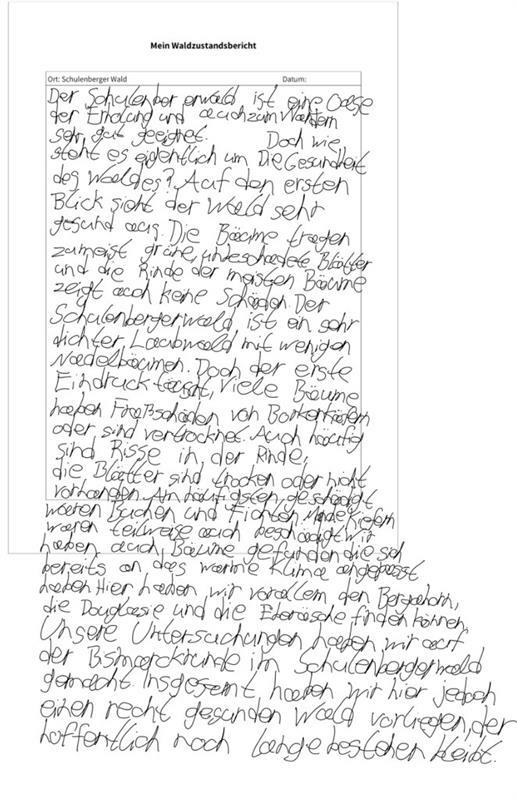 Mein Waldzustandsbericht
Ort: Schulenberger Wald Datum:
Der Schulenberger wald ist eine Oase
der Erholung und auch zum Wandern
sehr gut geeignet. Doch wie
steht es eigentlich um Die Gesundheit
des Waldes? Auf den ersten
Blick sieht der Wald sehr
gesund aus. Die Bäume tragen
zumeist grüne, unbeschadete Blätter
und die Rinde der meisten Bäume
zeigt auch keine Schäden. Der
Schulenbergerwald, ist ein sehr
dichter Laubwald mit wenigen
Nadelbäumen. Doch der erste
Eindruck täuscht, Viele Bäume
haben Fraßschäden von Borkenkäfern
oder sind vertrocknet. Auch häufig
sind Risse in der Rinde,
die Blätter sind trocken oder nicht
vorhanden. Am häufigsten geschädigt
waren Buchen und Fichten. Kiefern
waren teilweise auch beschädigt Wir
haben auch Bäume gefunden die sich
bereits an das warme Klima angepasst
haben Hier haben wir vorallem den Bergahorn,
die Douglasie und die Eberäsche finden können,
Unsere Untersuchungen haben wir auf
der Bismarckrunde im Schulenbergerwald
gemacht. Insgesamt, haben wir hier jedoch
einen recht gesunden Wald vorliegen, der
hoffentlich noch lange bestehen bleibt.